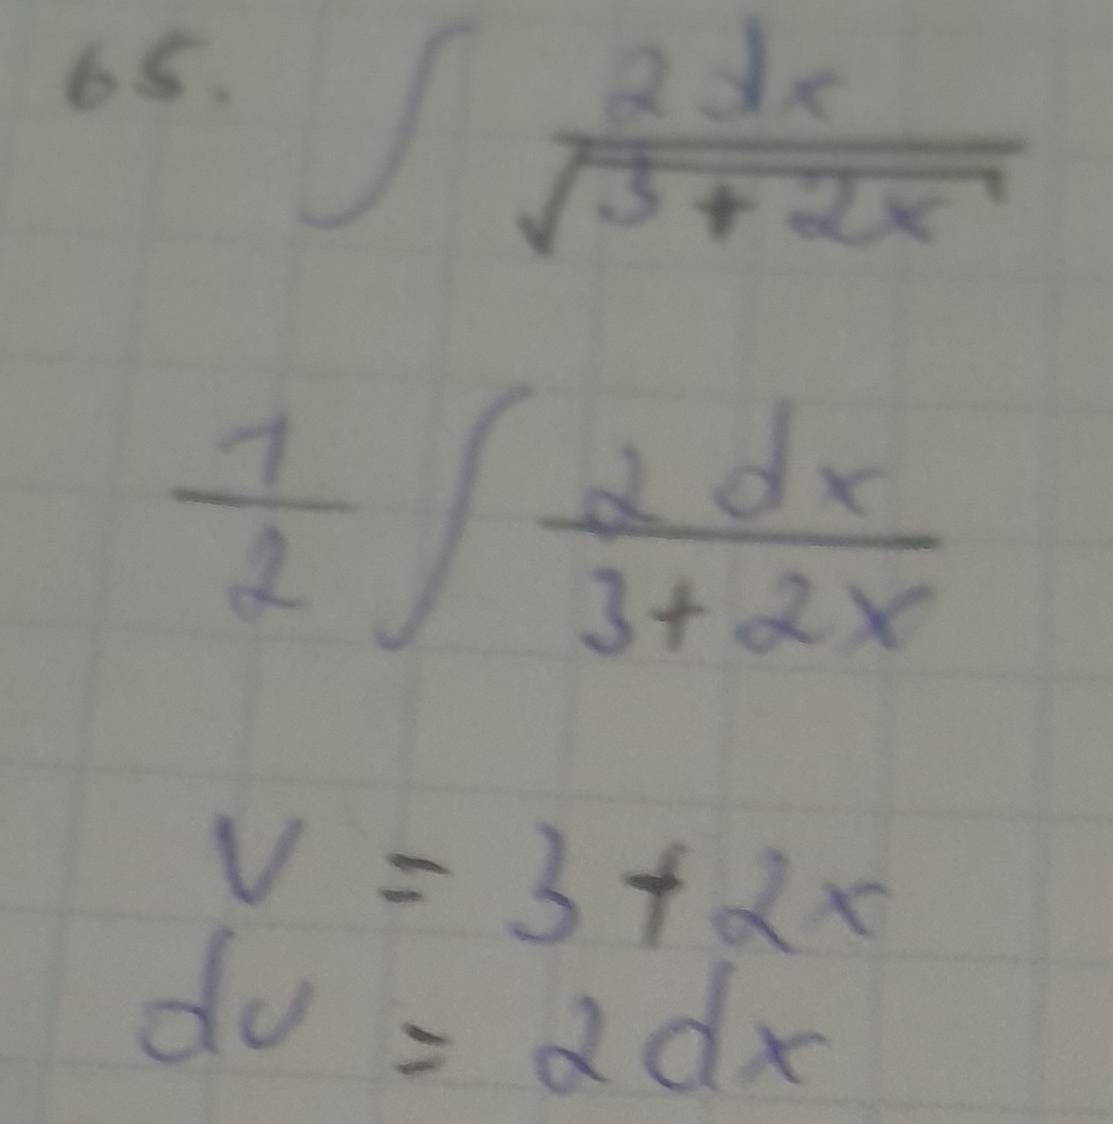 65. ∫ 2 dx / √(3 + 2x)
1/2 ∫ 2 dx / 3 + 2x
v = 3 + 2x
dv = 2 dx